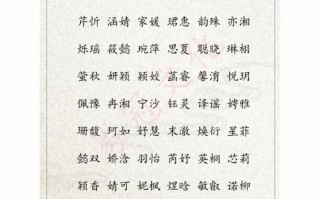 芹忻 涵婧 家媛 珺惠 韵殊 亦湘
烁瑶 筱懿 琬萍 思夏 聪晓 琳栩
莹秋 妍颖 颖姣 荔睿 馨淯 悦玥
佩豫 冉湘 宁沙 钰灵 译谣 娉雅
珊馥 珂如 妤慧 末澈 焕衍 星菲
懿双 娇浛 羽怡 芮妤 英桐 芯莉
颖香 婧可 妮枫 煜晗 敏叡 诺柳